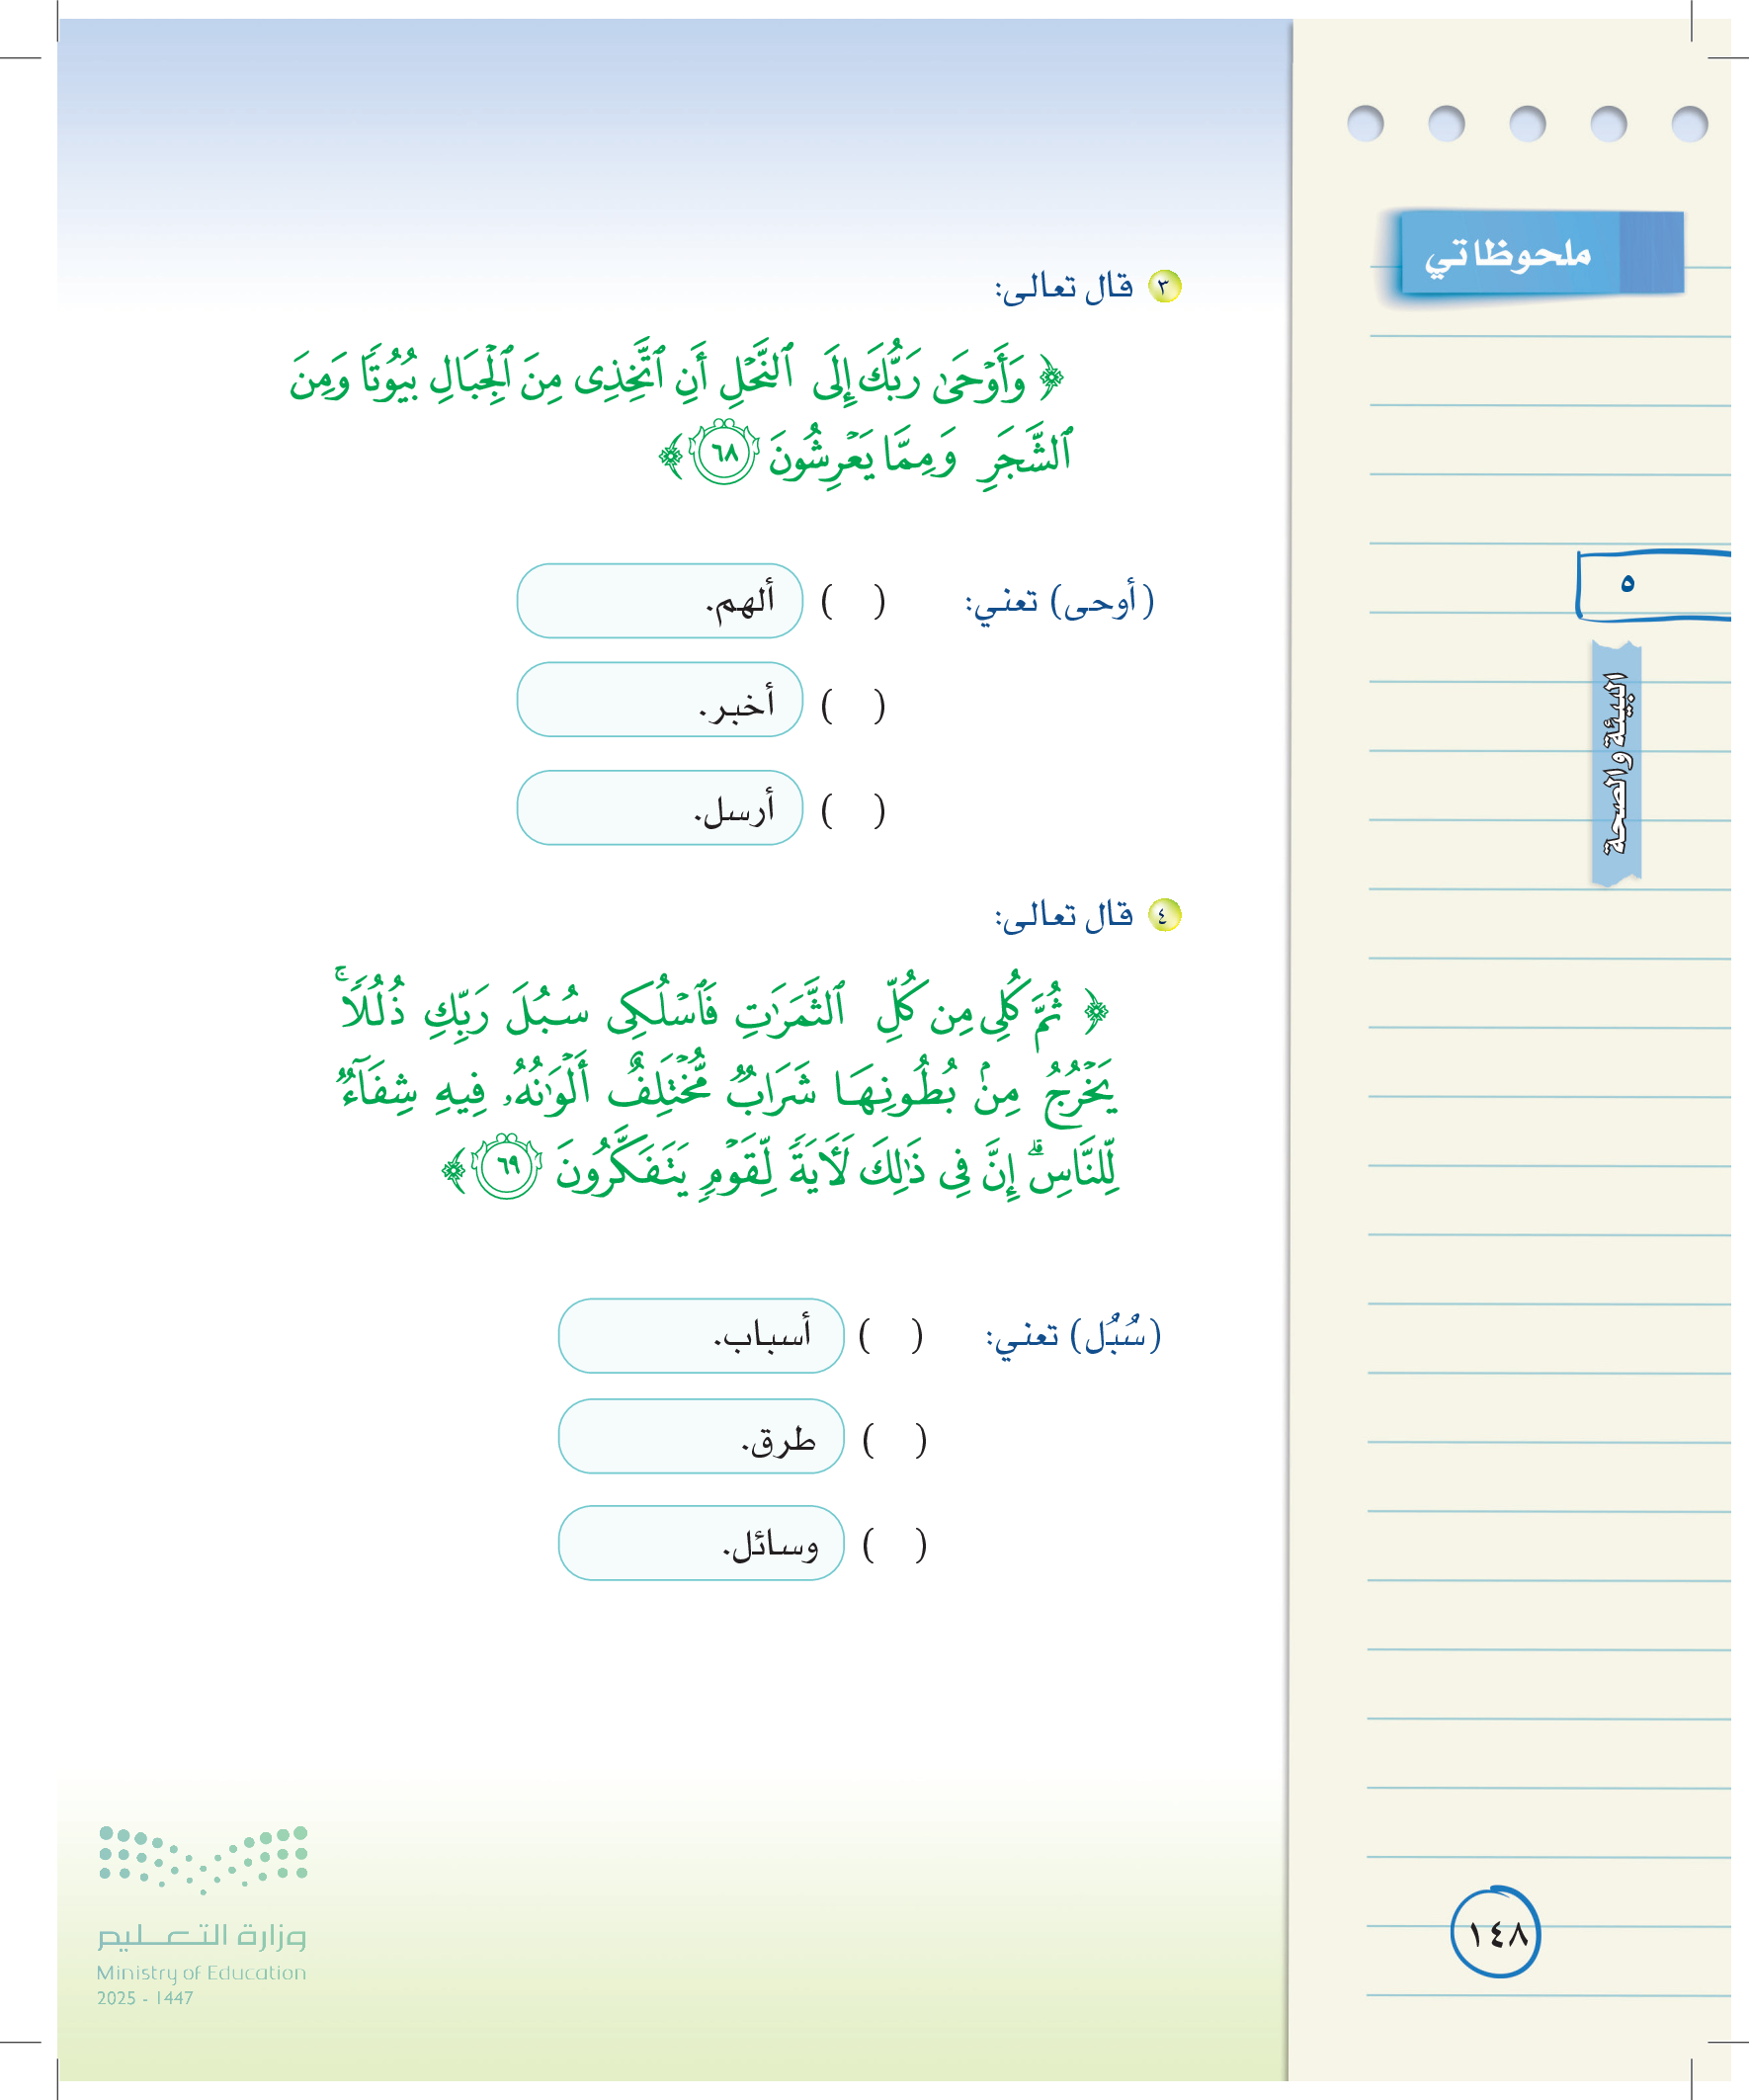 ملحوظاتي
٣ قال تعالى:
﴿ وَأَوۡحَىٰ رَبُّكَ إِلَى ٱلنَّحۡلِ أَنِ ٱتَّخِذِى مِنَ ٱلۡجِبَالِ بُيُوتٗا وَمِنَ
ٱلشَّجَرِ وَمِمَّا يَعۡرِشُونَ ٦٨ ﴾
(أوحى) تعني: ( ) ألهم.
( ) أخبر.
( ) أرسل.
٤ قال تعالى:
﴿ ثُمَّ كُلِى مِن كُلِّ ٱلثَّمَرَٰتِ فَٱسۡلُكِى سُبُلَ رَبِّكِ ذُلُلٗاۚ
يَخۡرُجُ مِنۢ بُطُونِهَا شَرَابٞ مُّخۡتَلِفٌ أَلۡوَٰنُهُۥ فِيهِ شِفَآءٞ
لِّلنَّاسِۗ إِنَّ فِى ذَٰلِكَ لَأٓيَةٗ لِّقَوۡمٖ يَتَفَكَّرُونَ ٦٩ ﴾
(سُبُل) تعني: ( ) أسباب.
( ) طرق.
( ) وسائل.
٥
البيئة والصحة
١٤٨
وزارة التعليم
Ministry of Education
2025 - 1447